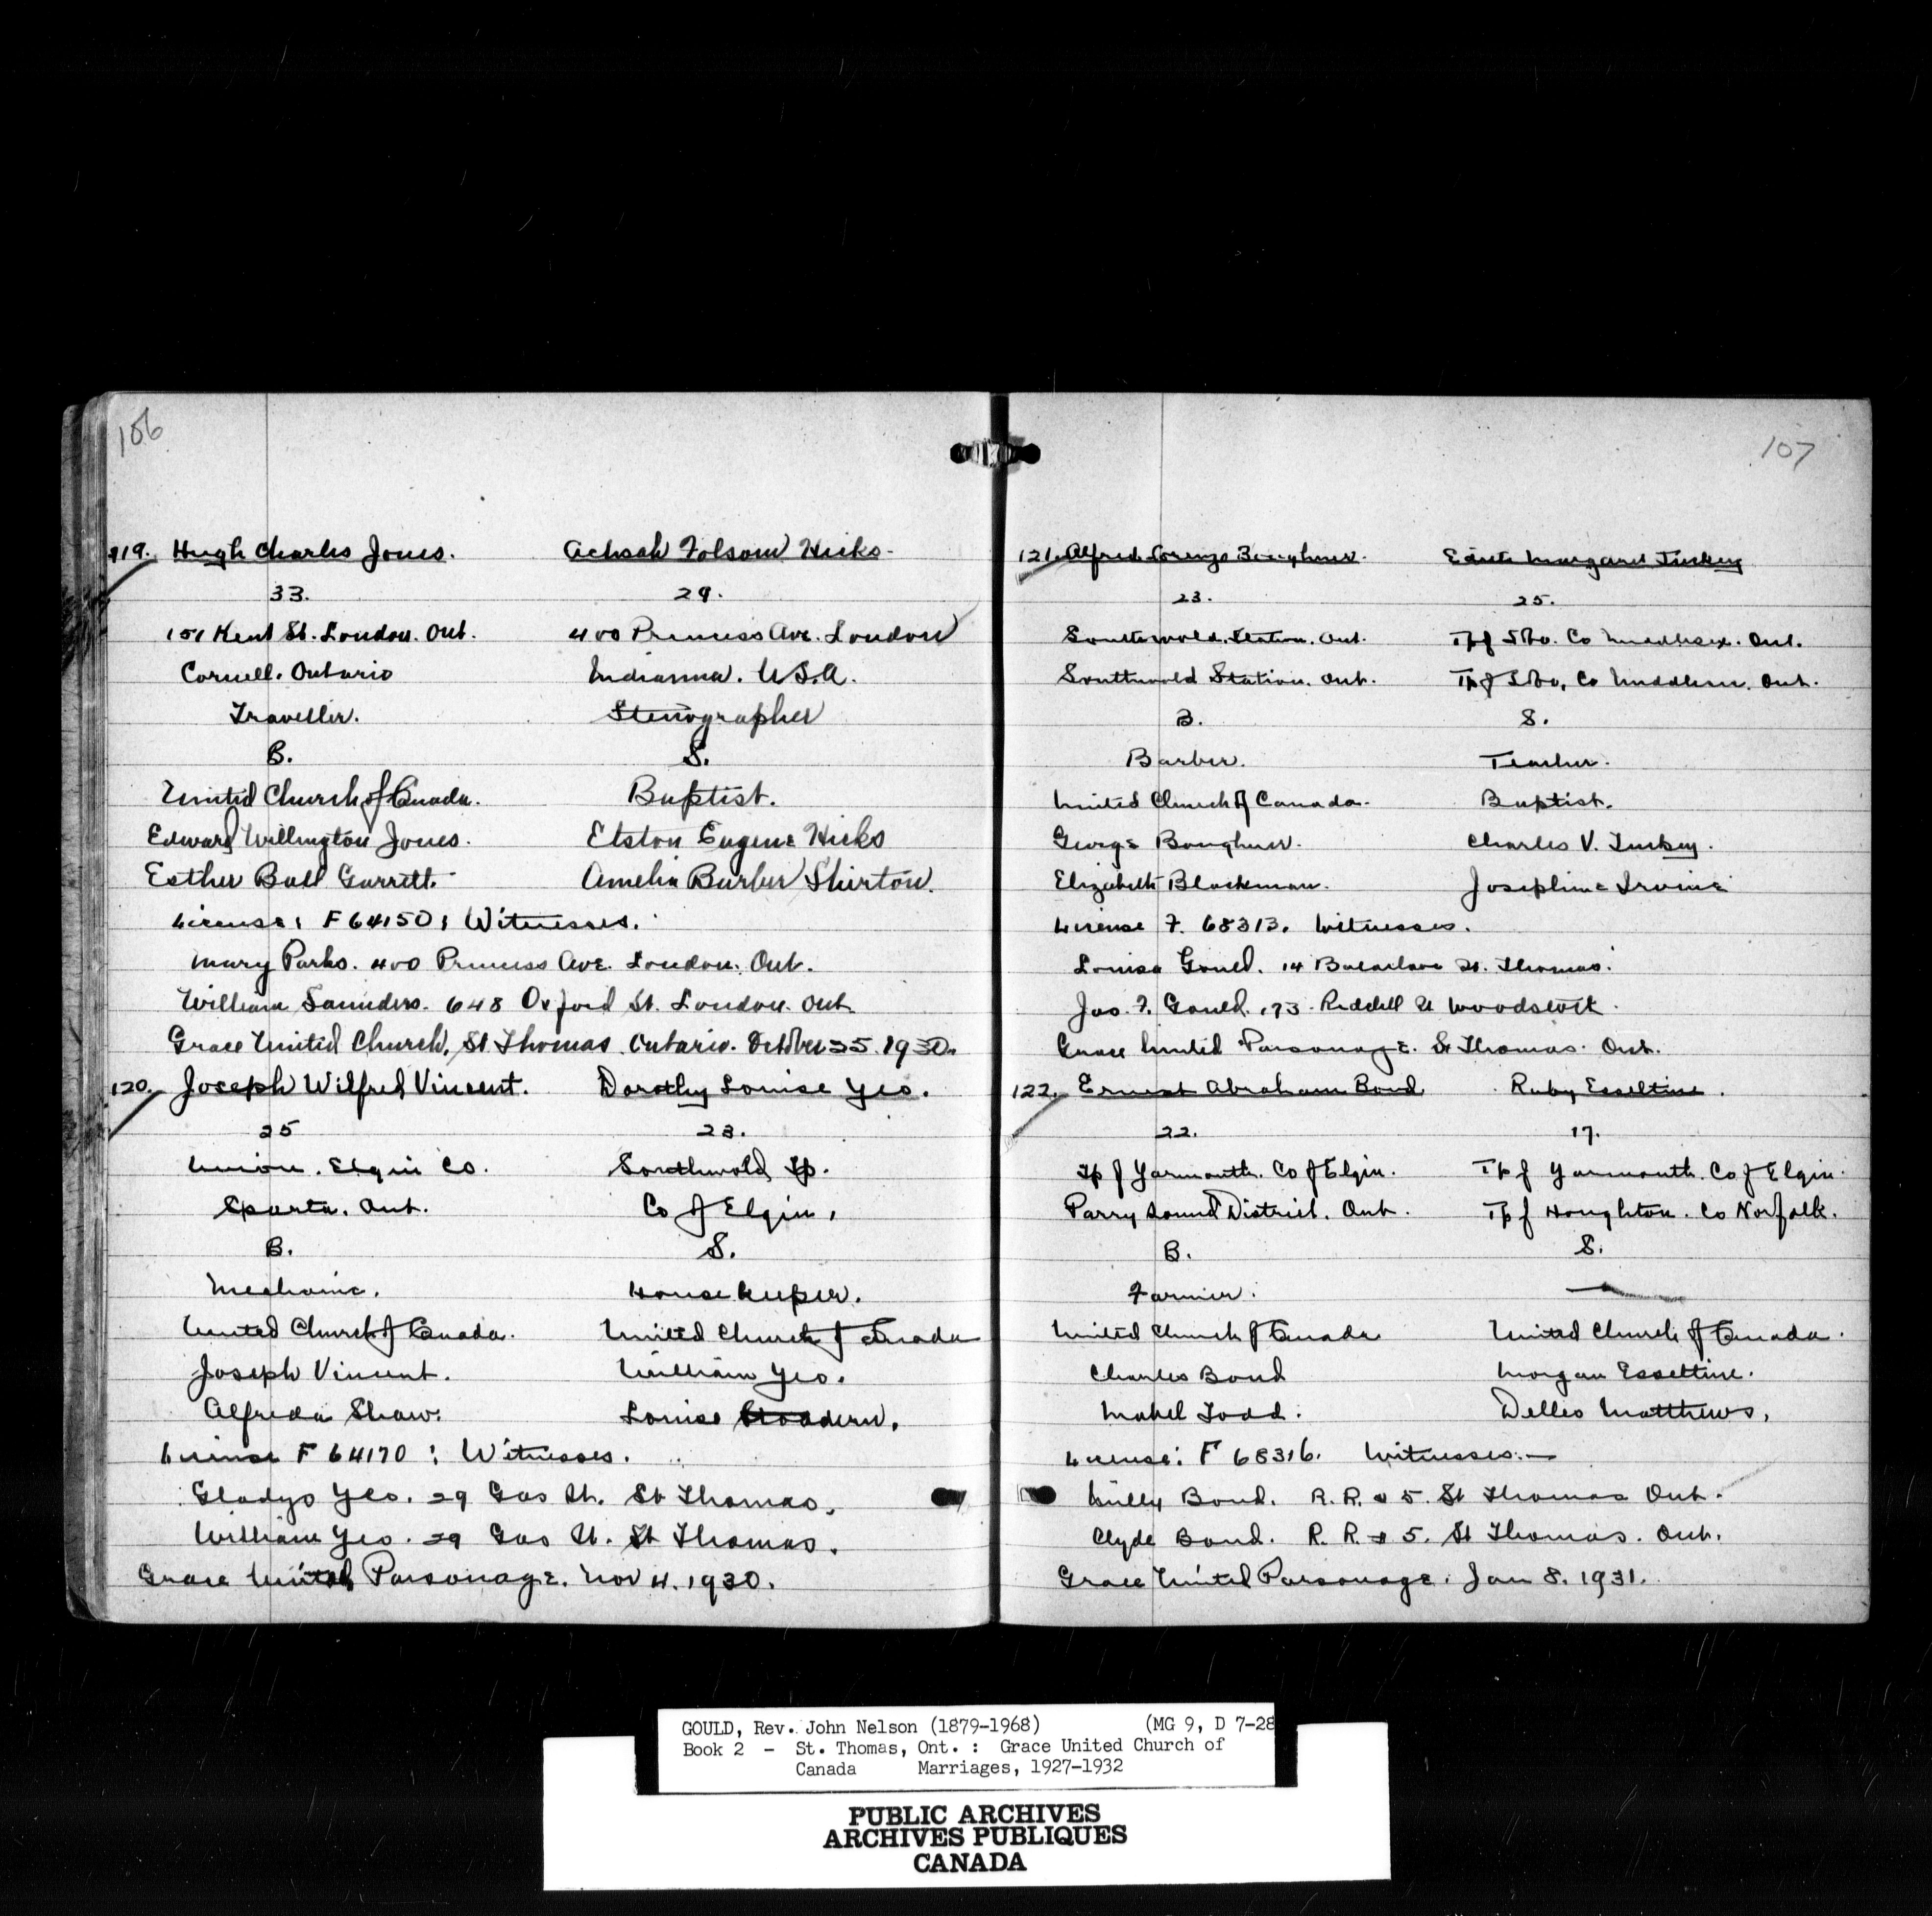 106
119. Hugh Charles Jones. Achsah Folsom Hicks.
33. 29.
151 Kent St. London. Ont. 400 Princess Ave. London
Cornell. Ontario Indianna. U.S.A.
Traveller. Stenographer
B. S.
United Church of Canada. Baptist.
Edward Willington Jones. Elston Eugene Hicks
Esther Ball Garrett. Amelia Barber Shirton.
License: F 64150: Witnesses.
Mary Parks. 400 Princess Ave. London. Ont.
William Saunders. 648 Oxford St. London. Ont.
Grace United Church, St Thomas. Ontario. October 25. 1930.
120. Joseph Wilfred Vincent. Dorothy Louise Yeo.
25 23.
Union. Elgin Co. Southwold Tp.
Sparta. Ont. Co of Elgin.
B. S.
Mechanic. Housekeeper.
United Church of Canada. United Church of Canada
Joseph Vincent. William Yeo.
Alfreda Shaw. Louise
License F 64170: Witnesses.
Gladys Yeo. 29 Gas St. St Thomas.
William Yeo. 29 Gas St. St Thomas.
Grace United Parsonage. Nov 4. 1930.
107
121. Alfred Lorenzo Boughner. Margaret Tuckey
23. 25.
Southwold Station. Ont. Tp of Co Middlesex. Ont.
Southwold Station. Ont. Tp of Co Middlesex. Ont.
B. S.
Barber. Teacher.
United Church of Canada. Baptist.
George Boughner. Charles V. Tuckey.
Elizabeth Blackman. Josephine Irvine
License F. 68313. Witnesses.
Louisa Gould. 14 Balaclava St. Thomas.
Jas. F. Gould. 173 Riddell St Woodstock.
Grace United Parsonage. St Thomas. Ont.
122. Ernest Abraham Bond Ruby Esseltine.
22. 17.
Tp of Yarmouth. Co of Elgin. Tp of Yarmouth. Co of Elgin.
Parry Sound District. Ont. Tp of Houghton. Co Norfolk.
B. S.
Farmer. —
United Church of Canada United Church of Canada.
Charles Bond Morgan Esseltine.
Mabel Todd. Matthews.
License: F 68316. Witnesses. —
Bond. R. R. # 5. St Thomas Ont.
Clyde Bond. R. R. # 5. St Thomas. Ont.
Grace United Parsonage. Jan 8. 1931.
GOULD, Rev. John Nelson (1879-1968) (MG 9, D 7-28
Book 2 - St. Thomas, Ont. : Grace United Church of
Canada Marriages, 1927-1932
PUBLIC ARCHIVES
ARCHIVES PUBLIQUES
CANADA